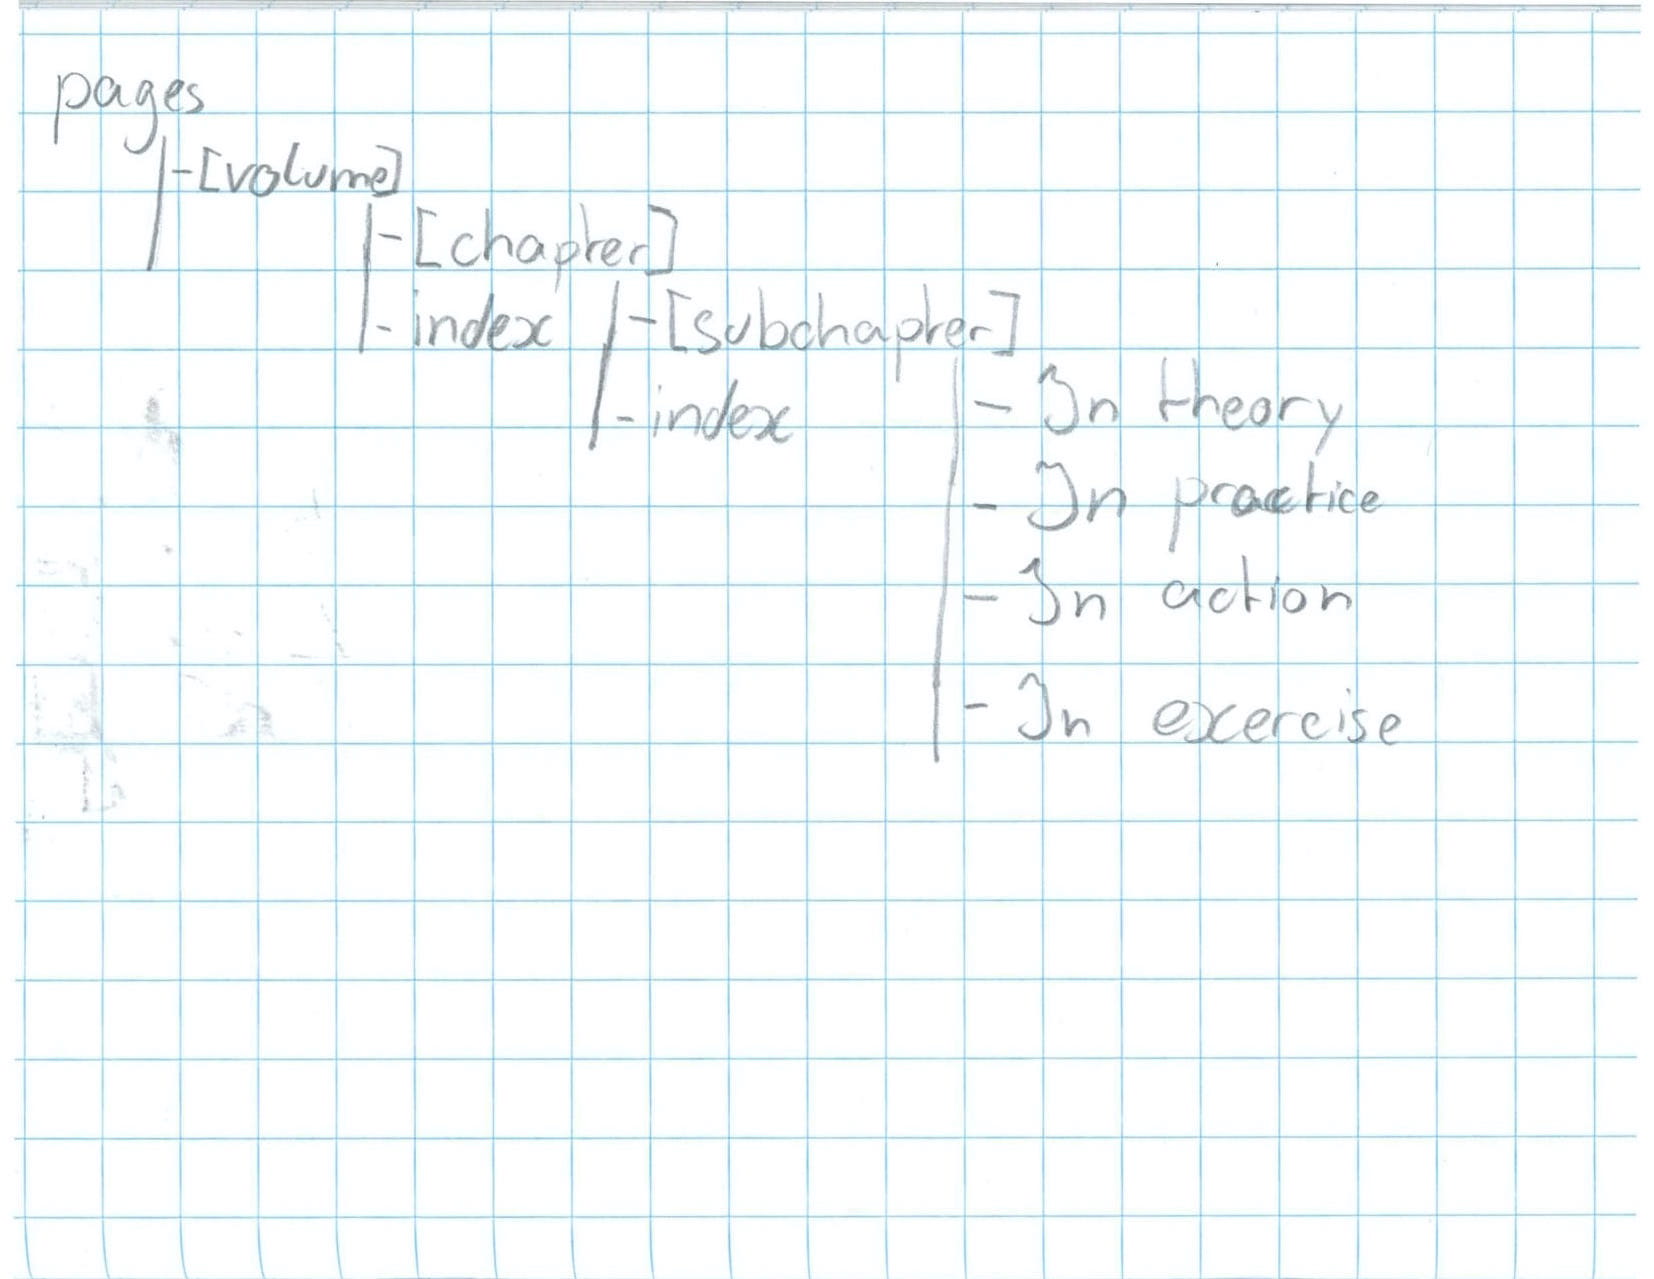 pages
-[volume]
-[chapter]
- index -[subchapter]
- index - In theory
- In practice
- In action
- In exercise